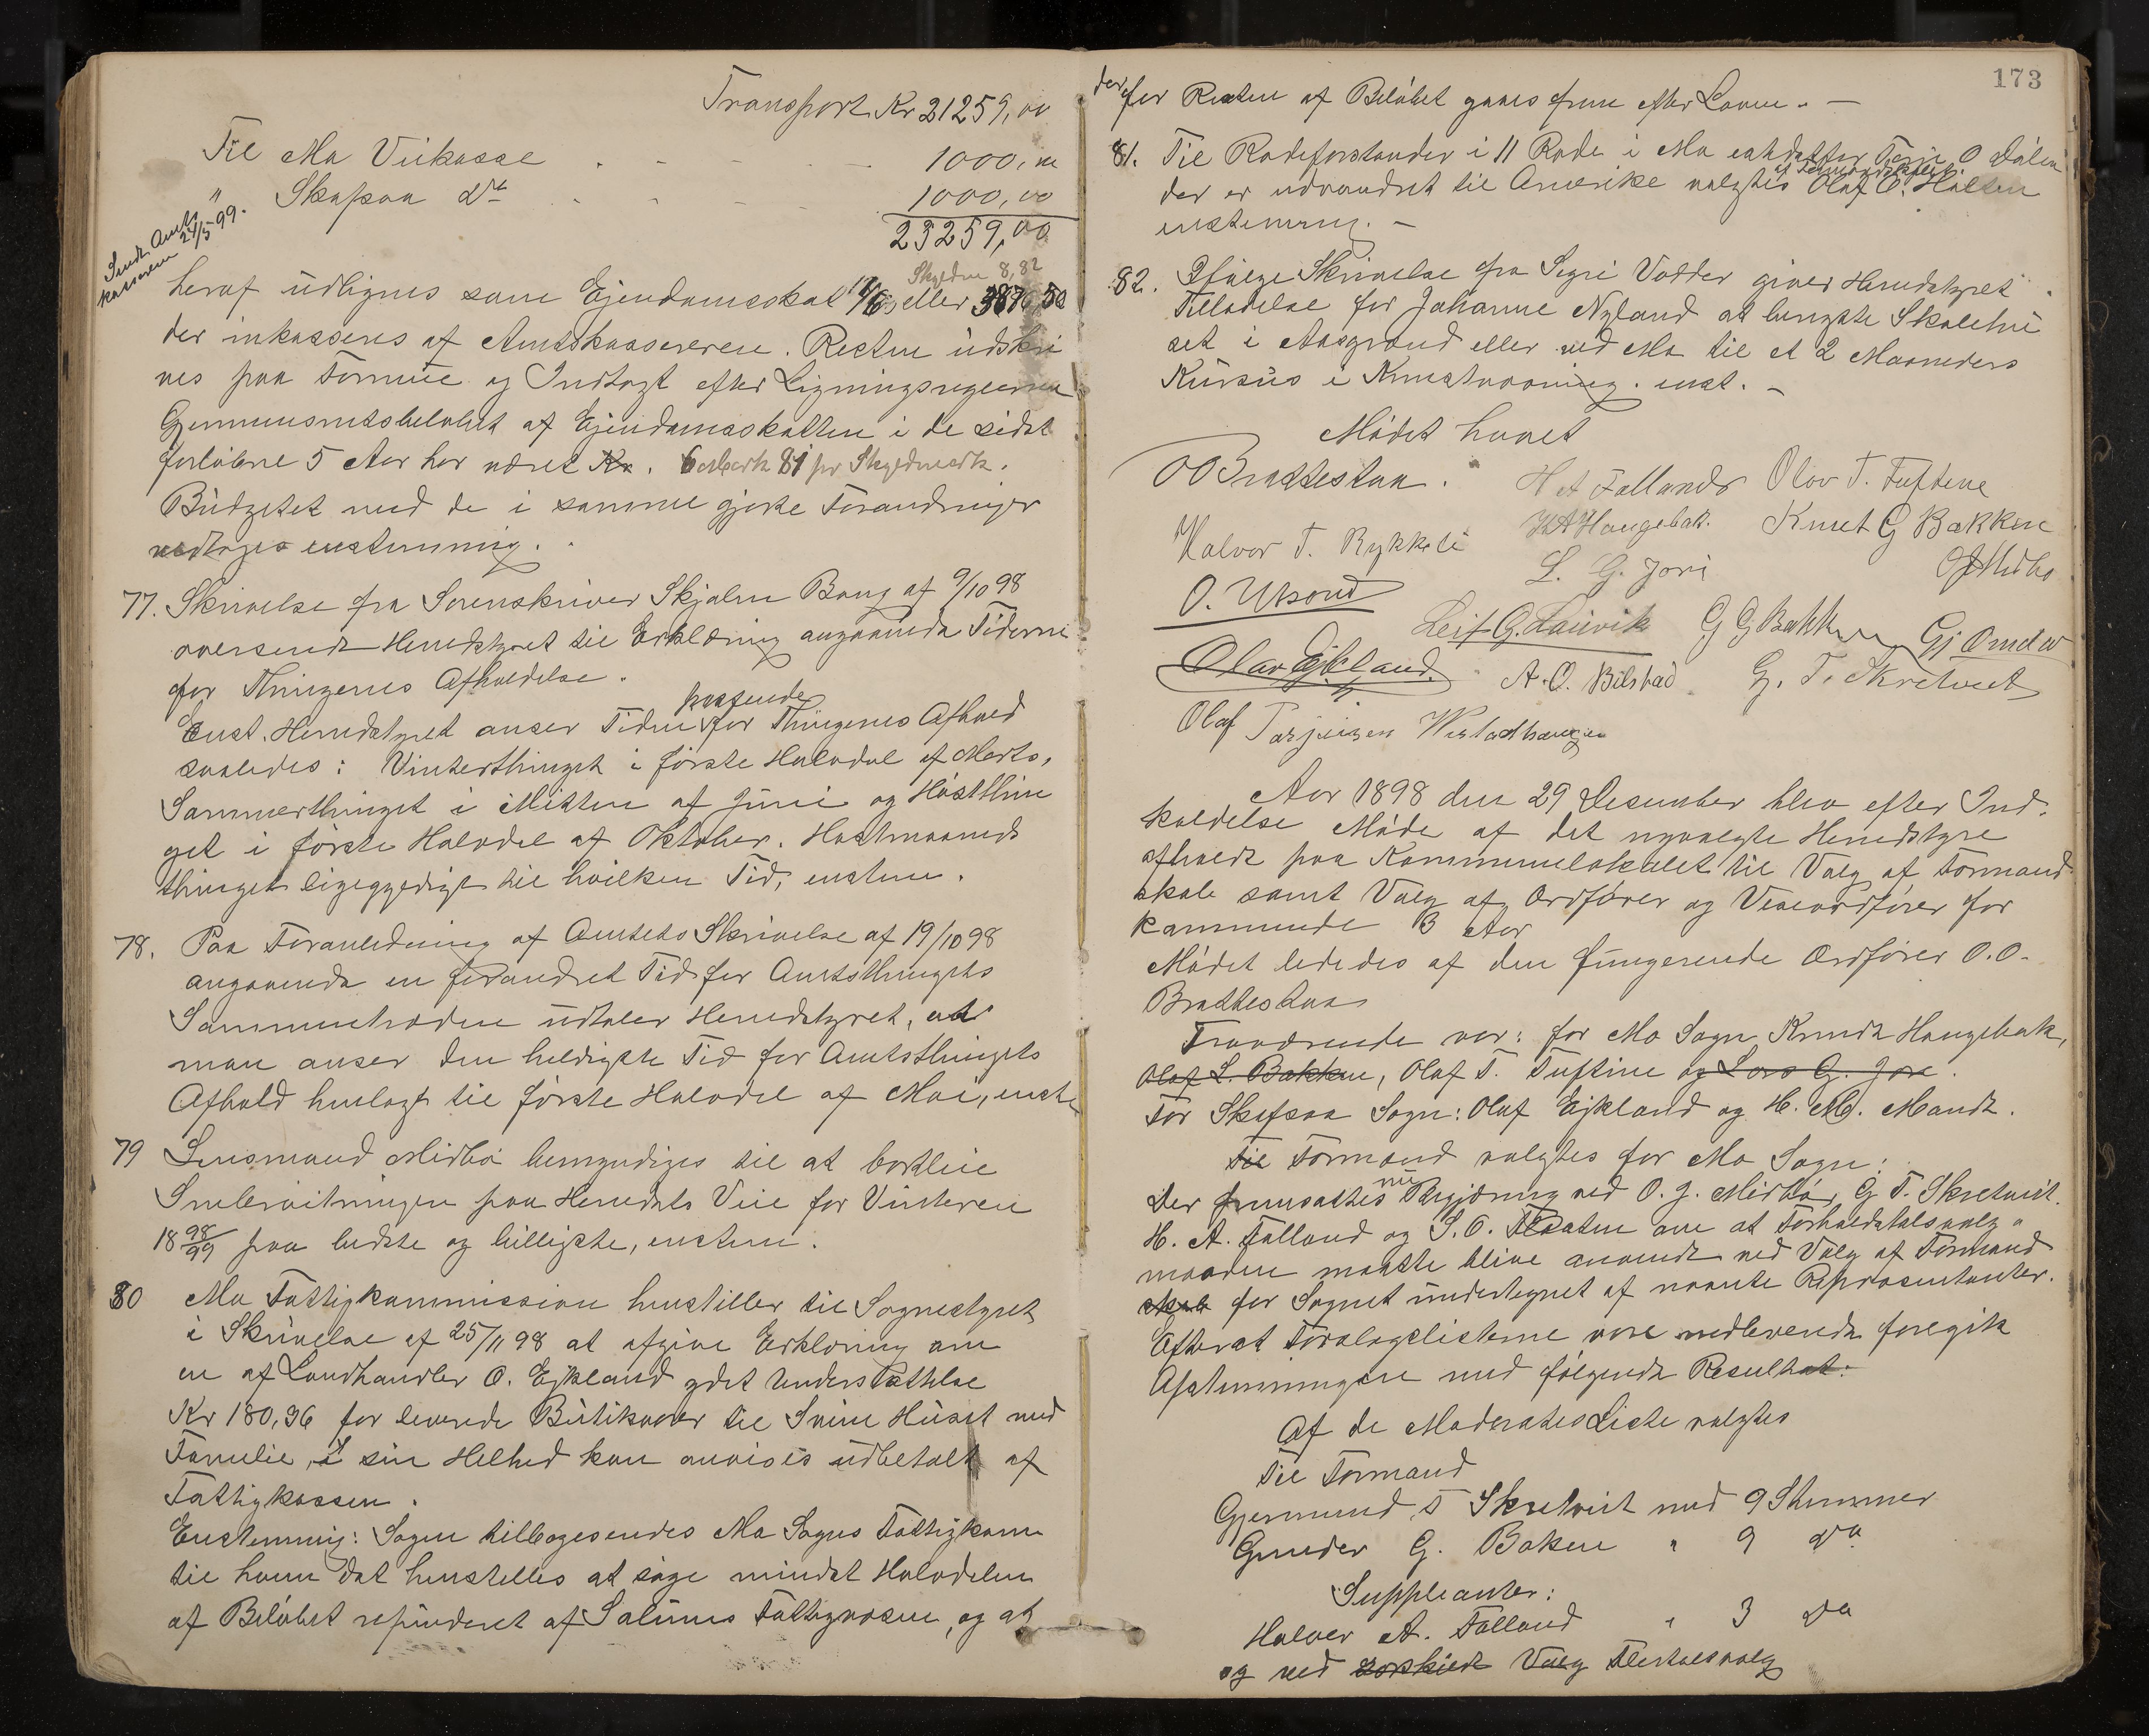 Transport Kr 21259,00
Til Mo Veikasse 1000,00
" Skafsaa Do 1000,00
23259,00
Sendt Amts
kasseren 24/5-99.
Skyldm 8,82
heraf udlignes som Ejendomsskat 1/6 eller 3876,50
der inkasseres af Amtskassereren. Resten udskri
ves paa Formue og Indtægt efter Ligningsreglerne
Gjennemsnitsbeløbet af Ejendomsskatten i de sidst
forløbne 5 Aar har været Kr. 81 pr Skyldmark.
Budgetet med de i samme gjorte Forandringer
vedtoges enstemmig.
77. Skrivelse fra Sorenskriver Skjalm Bang af 9/10 98
oversendt Herredstyret til Erklæring angaaende Tiderne
for Thingenes Afholdelse.
Enst. Herredstyret anser Tiden passende for Thingenes Afhold
saaledes: Vinterthinget i første Halvdel af Marts,
Sommerthinget i Midten af Juni og Høstthin
get i første Halvdel af Oktober. Høstmaaneds
thinget ligegyldigt til hvilken Tid, enstem.
78. Paa Foranledning af Amtets Skrivelse af 19/10 98
angaaende en forandret Tid for Amtsthingets
Sammentræden udtaler Herredstyret, at
man anser den heldigste Tid for Amtsthingets
Afhold henlagt til første Halvdel af Mai, enst.
79 Lensmand Midbø bemyndiges til at bortleie
Snebrøitningen paa Herredets Veie for Vinteren
18 98/99 paa bedste og billigste, enstem.
80 Mo Fattigkommission henstiller til Sognestyret
i Skrivelse af 25/11 98 at afgive Erklæring om
en af Landhandler O. Ejkland ydet Understøttelse
Kr 180,96 for leverede Butikvarer til Svein Huset med
Familie, i sin Helhed kan anvises udbetalt af
Fattigkassen.
Enstemmig: Sagen tilbagesendes Mo Sogns Fattigkom
til hvem det henstilles at søge mindst Halvdelen
af Beløbet refunderet af Fattigvæsen, og at
173
der for Resten af Beløbet gaaes frem efter Loven. —
81. Til Rodeforstander i 11 Rode i Mo istedetfor Terje O Dalen
der er udvandret til Amerika valgtes Olaf O. Halten
enstemmig. —
82. Ifølge Skrivelse fra Signi Vadder giver Herredstyret
Tilladelse for Johanne Nyland at benytte Skolehu
set i Aasgrænd eller ved Mo til et 2 Maaneders
Kursus i Kunstvævning. enst. —
Mødet hævet
OO Brattestaa. H A Falland Olav T. Tuftene
Halvor T. Rykkeli K A Haugebak. Knut G Bakken
L. G. Jori O J Midbø
O. Utsond
Leif G. Lauvik G G Bakken Gj Omdal
Olav Ejkland. A. O. Bilstad G. T. Skretveit
Olaf Tarjeisen
Aar 1898 den 29 Desember blev efter Ind-
kaldelse Møde af det nyvalgte Herredstyre
afholdt paa Kommunelokalet til Valg af Formand
skab samt Valg af Ordfører og Viseordfører for
kommende 3 Aar
Mødet lededes af den fungerende Ordfører O.O.
Brattestaa
Fraværende var: for Mo Sogn Knudt Haugebak,
Olaf L. Bakken, Olaf T. Tuftine og Lars G. Jore.
For Skafsaa Sogn: Olaf Ejkland og H. M. Mandt.
Til Formand valgtes for Mo Sogn:
Der fremsattes nu Begjæring ved O. J. Midbø, G T. Skretveit.
H. A. Falland og S. O. om at Forholdstalsvalg
maaden maatte blive anvendt ved Valg af Formand
skab for Sognet undertegnet af nævnte Repræsentanter.
Efterat Forslagslisterne vare indleverede foregik
Afstemningen med følgende Resultat:
Af de Moderates Liste valgtes
Til Formand
Gjermund T Skretveit med 9 Stemmer
Gunder G. Baken " 9 Do
Suppleanter:
Halvor A. Falland " 3 Do
og ved særskilt Valg Flertalsvalg